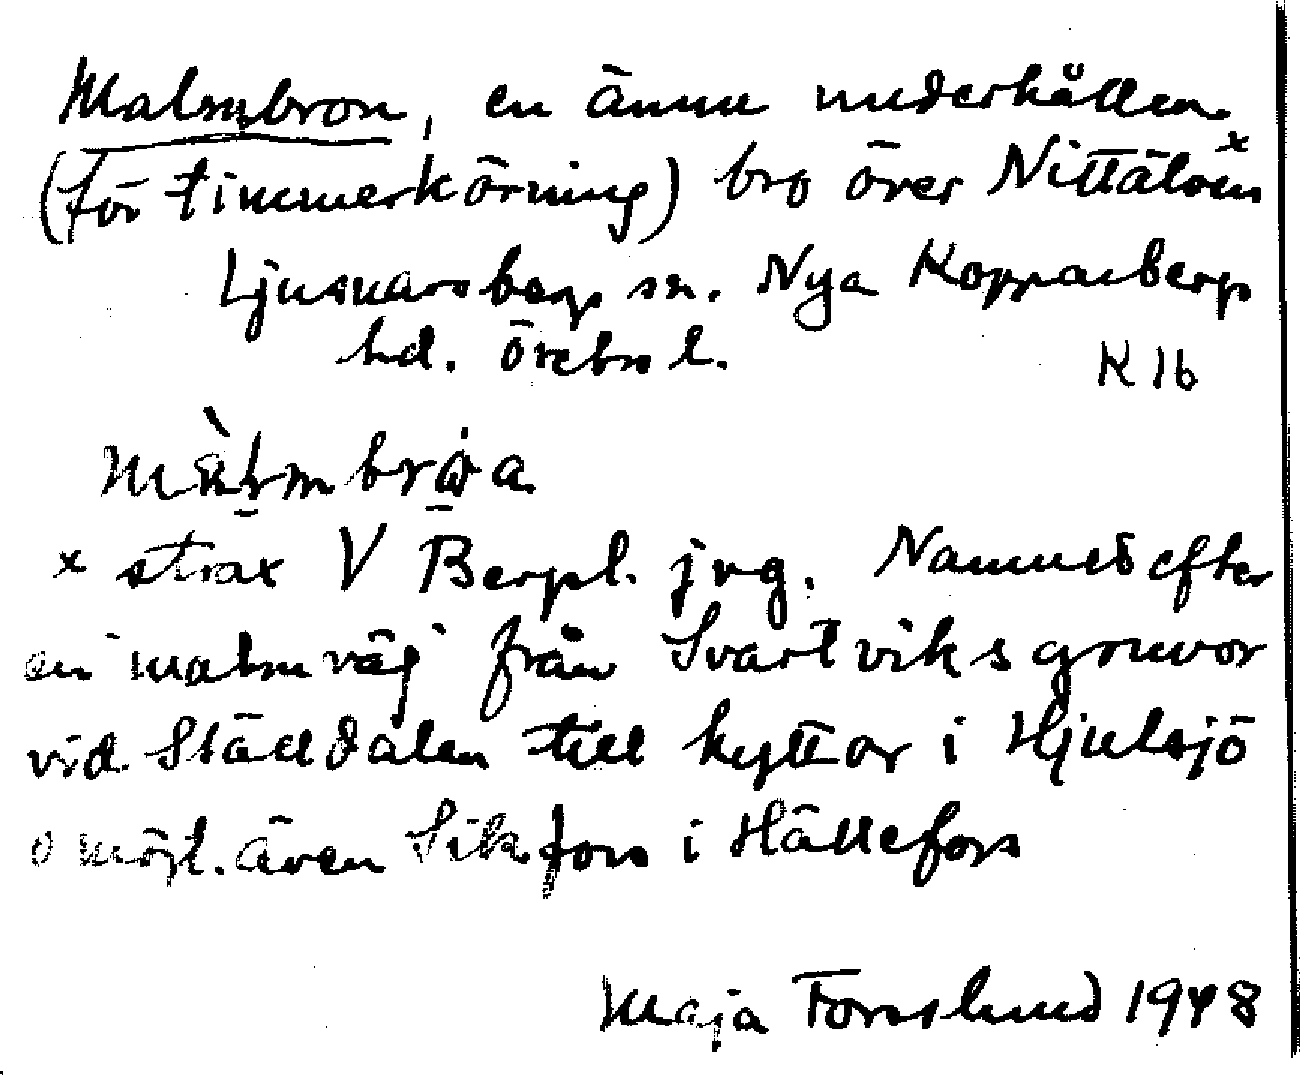 Malmbron, en ännu underhållen
(för timmerkörning) bro över Nittälven x
Ljusnarsbergs sn. Nya Kopparbergs
hd. Örebro l. K 16
x strax V Bergsl. jvg. Namnet efter
en "malmväg" från Svartviksgruvor
vid Ställdalen till hyttor i Hjulsjö
o möjl. även Sikfors i Hällefors
Maja Forsslund 1948